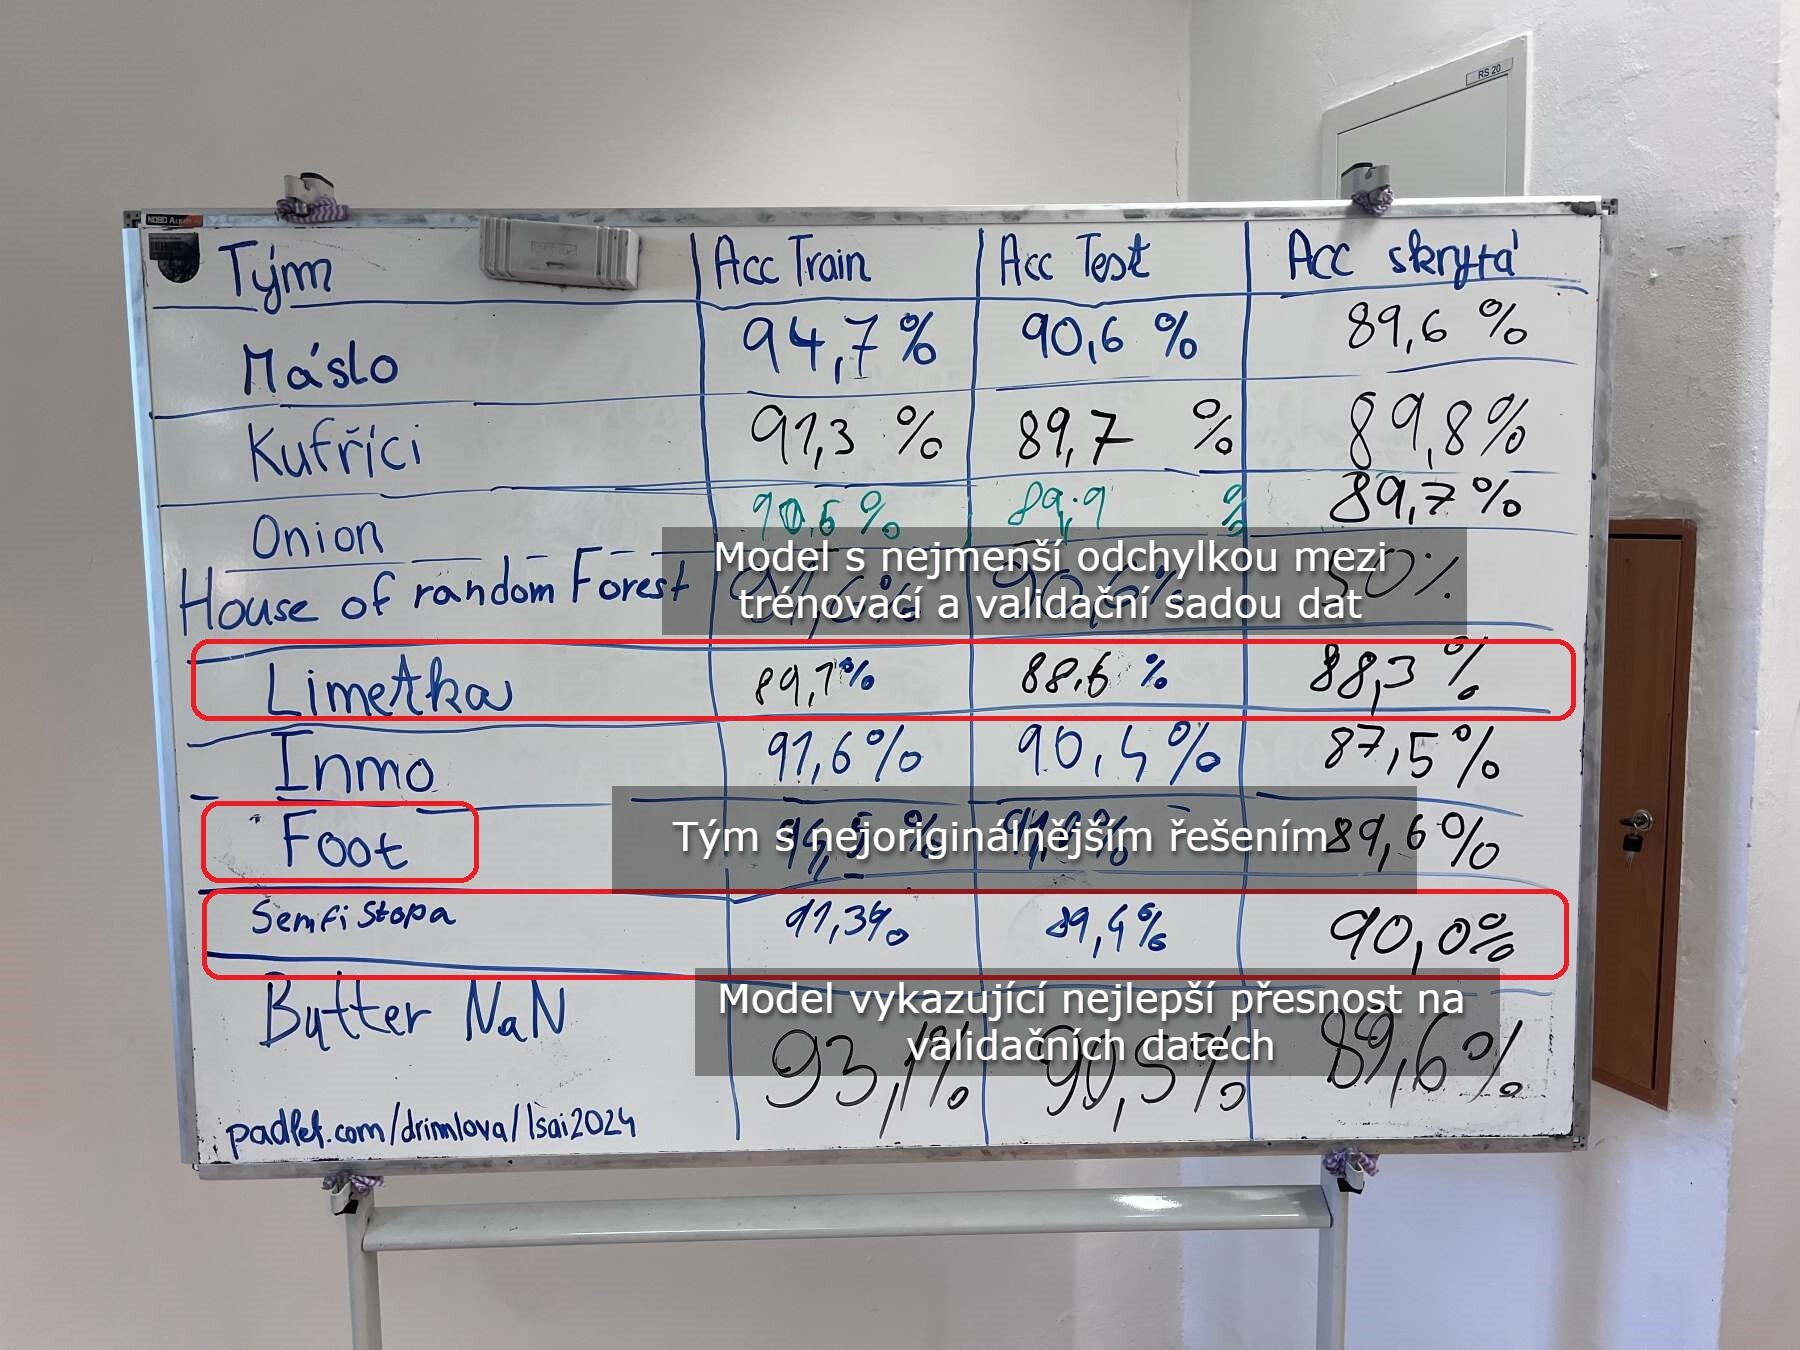 RS 20
NOBO
Tým Acc Train Acc Test Acc skrytá
Máslo 94,7% 90,6 % 89,6 %
Kufříci 91,3 % 89,7 % 89,8%
Onion 90,6% 89,9 % 89,7%
Model s nejmenší odchylkou mezi
trénovací a validační sadou dat
House of random Forest 91,6% 90,6%
Limetka 89,7% 88,6 % 88,3 %
Inmo 91,6% 90,4% 87,5%
Foot 89,6%
Tým s nejoriginálnějším řešením
Semfistopa 91,3% 89,4% 90,0%
Model vykazující nejlepší přesnost na
validačních datech
Butter NaN 93,1% 90,5% 89,6%
padlet.com/drimlova/lsai2024